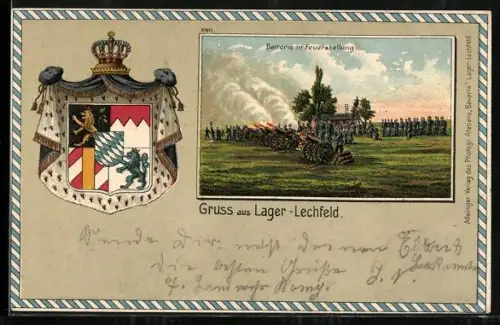 Batterie in Feuerstellung
Gruss aus Lager-Lechfeld.
Alleiniger Verlag des Photogr. Ateliers „Bavaria“ Lager-Lechfeld
Sende Dir nebst deinen Eltern
die besten Grüße
7. Landwehr Komp.